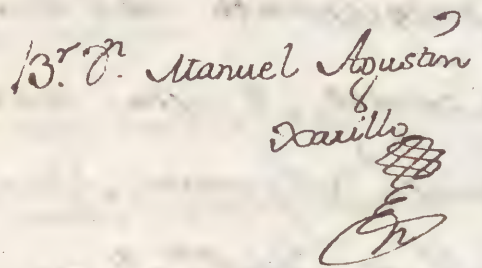 Br. Dn. Manuel Agustin
Xarillo